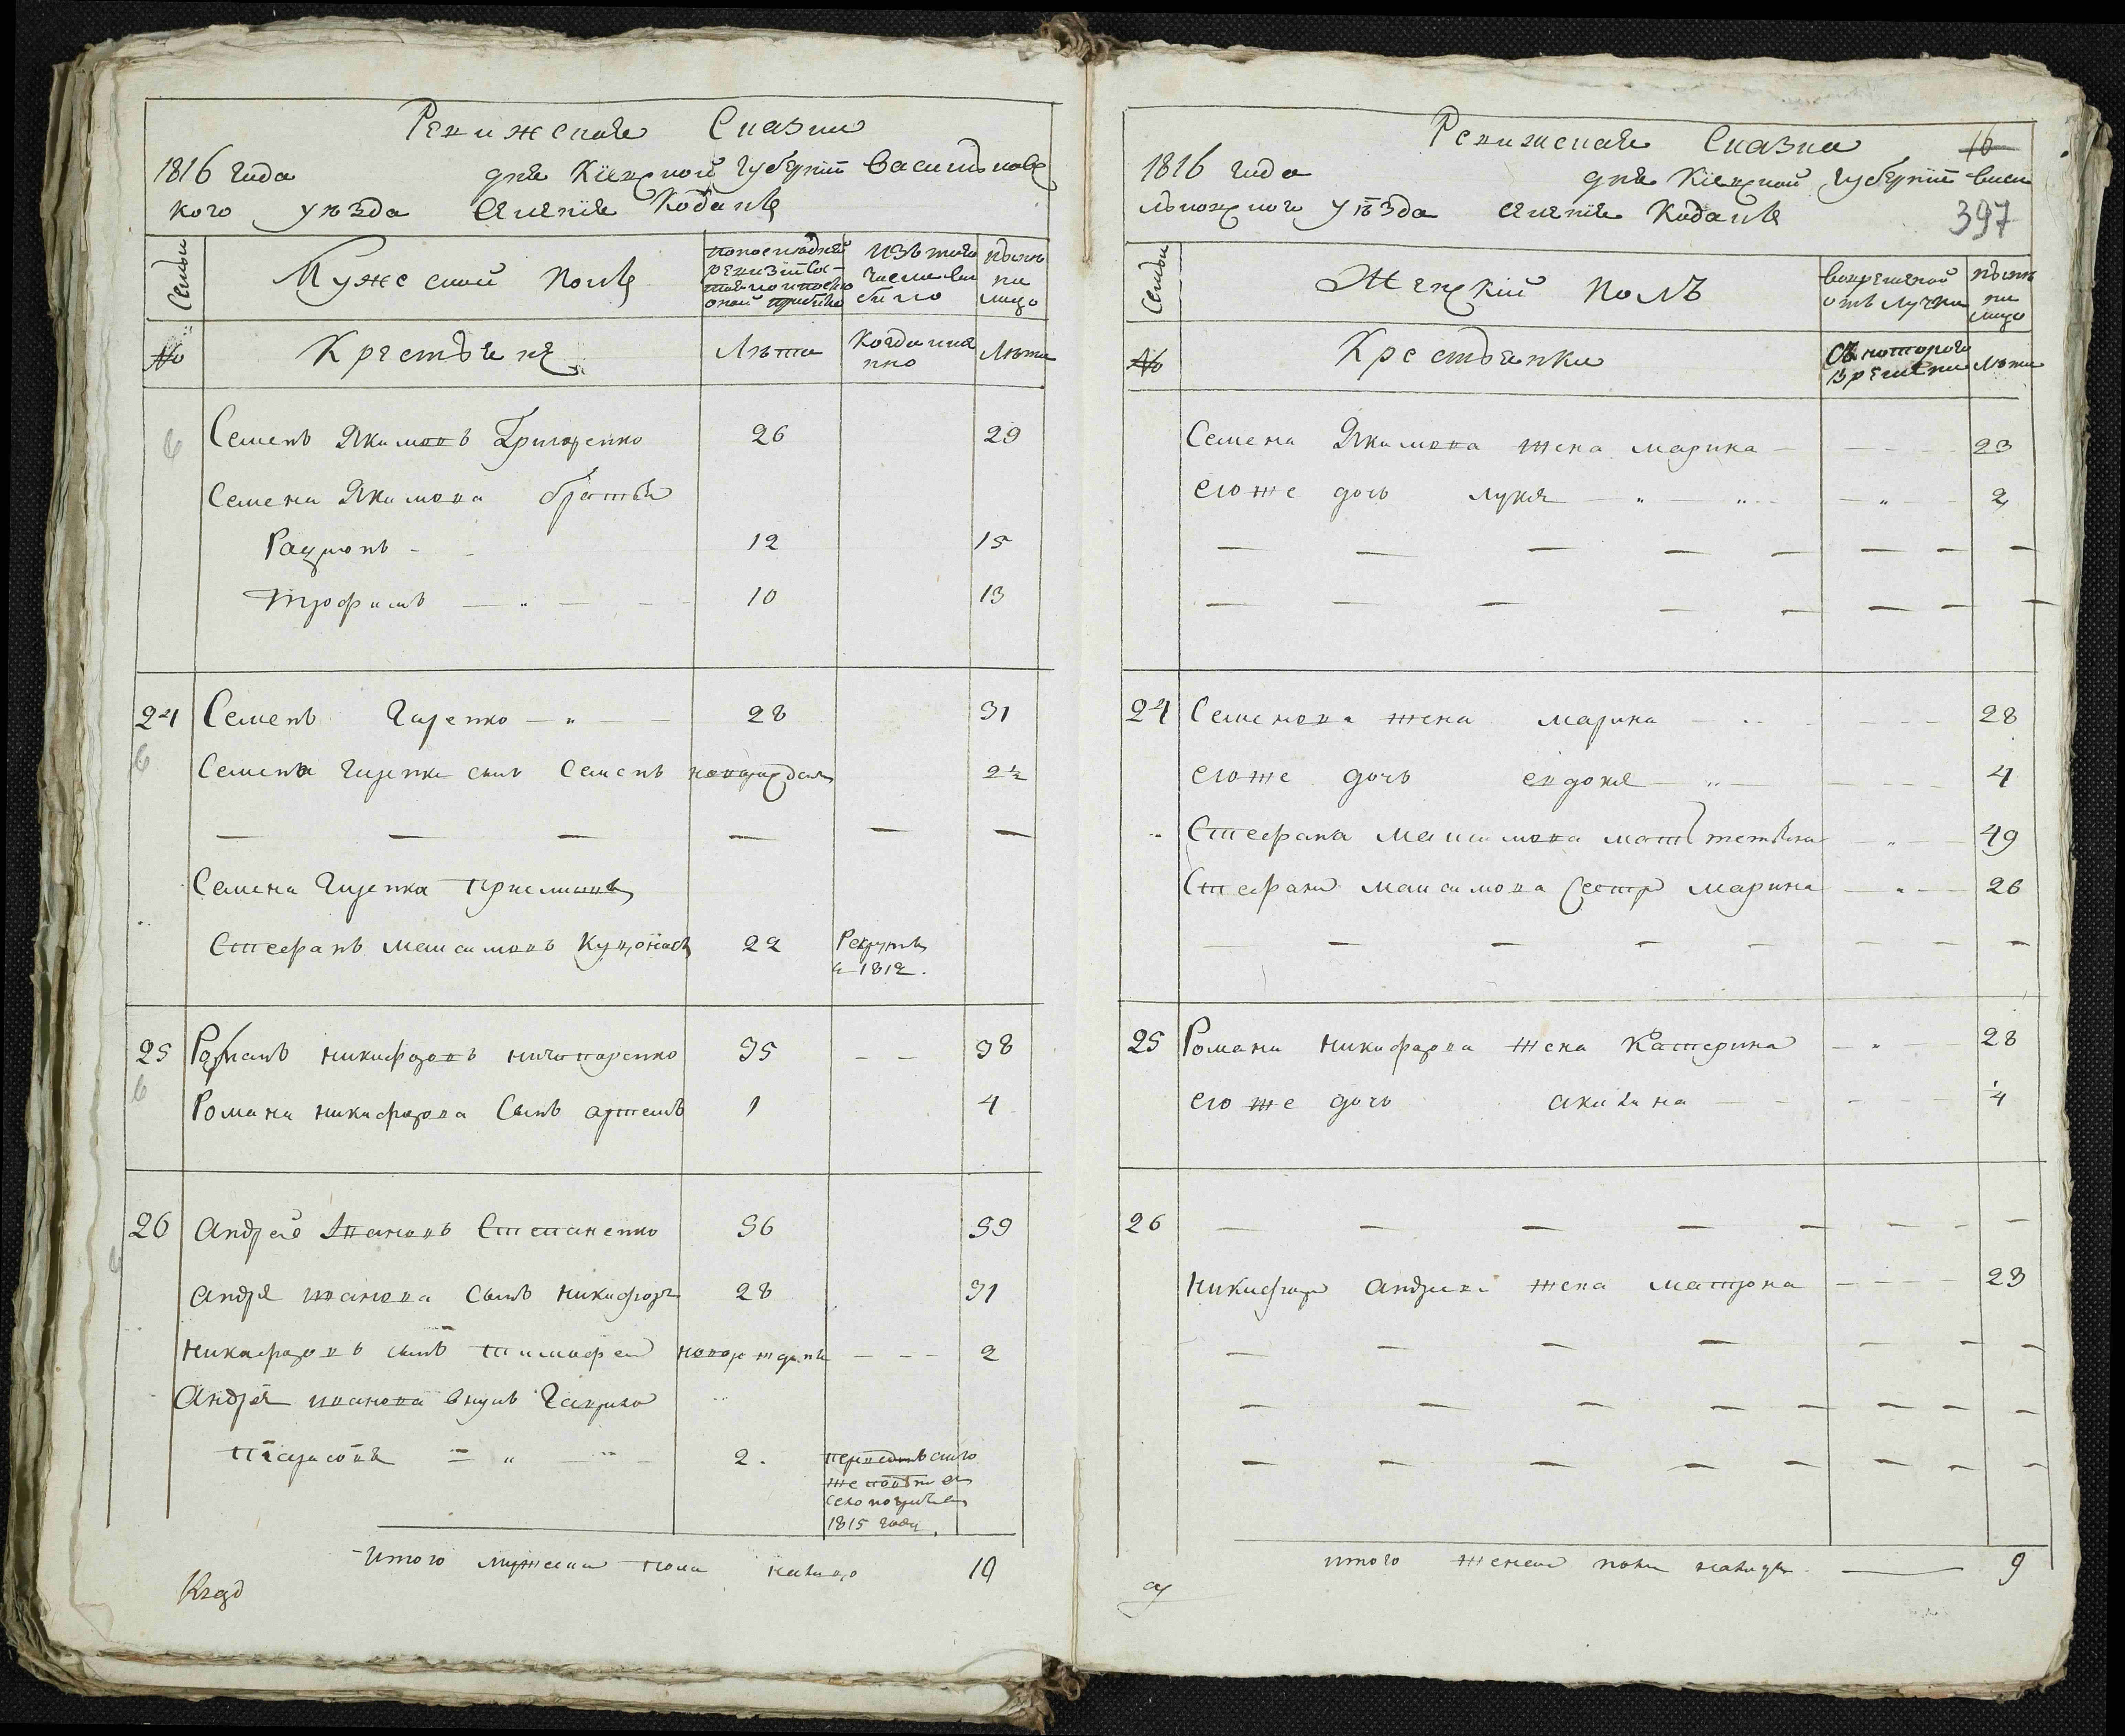 Ревижская Сказка
1816 года дня Кіевской Губерніи Василько́вс
кого уезда Селенія Кодаки
Семьи
Мужеской Полъ
по последней ревизіи состояло и после оной прибыло
Изъ того числа выбыло
Ныне на лицо
№
Крестьяне
Лѣта
Когда именно
Лѣта
Семенъ Якимовъ Григоренко 26 29
Семена Якимова братья
Радионъ - 12 15
Трофимъ 10 13
24 Семенъ Гиренко 28 31
Семена Гиренка сынъ Семенъ новорожденъ 2½
Семена Гиренка приемышъ
Стефанъ Максимовъ 22 Рекрутъ
в 1812.
25 Романъ Никифоровъ Ничипоренко 35 38
Романа Никифорова Сынъ Артемъ 1 4
26 Андрей Ивановъ Степаненко 56 59
Андрея Иванова Сынъ Никифоръ 28 31
Никифоровъ сынъ Тимофей новорожденъ 2
Андрея Иванова внукъ Гаврило
Тарасовъ 2.
1815 году.
Итого мужеска пола налицо 10
Ревижская Сказка
16
1816 года дня Кіевской Губерніи Васи
льковского уѣзда Селенія Кодаки
397
Семьи
Женскій полъ
Во временной отлучке
Ныне на лицо
№
Крестьянки
Съ которого времени
Лѣта
Семена Якимова жена Марина 23
Его же дочь Лукія 2
24 Семенова жена Марина 28
Его же дочь Евдокія 4
Стефана Максимова мать Тетіана 49
Стефана Максимова сестра Марина 26
25 Романа Никифорова жена Катерина 28
Его же дочь Акилина ¼
26
Никифора Андреева жена Матрона 23
Итого женска пола налицо 9